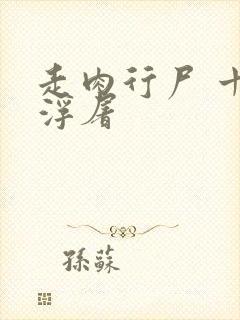 走肉行尸 十
浮屠
孫蘇